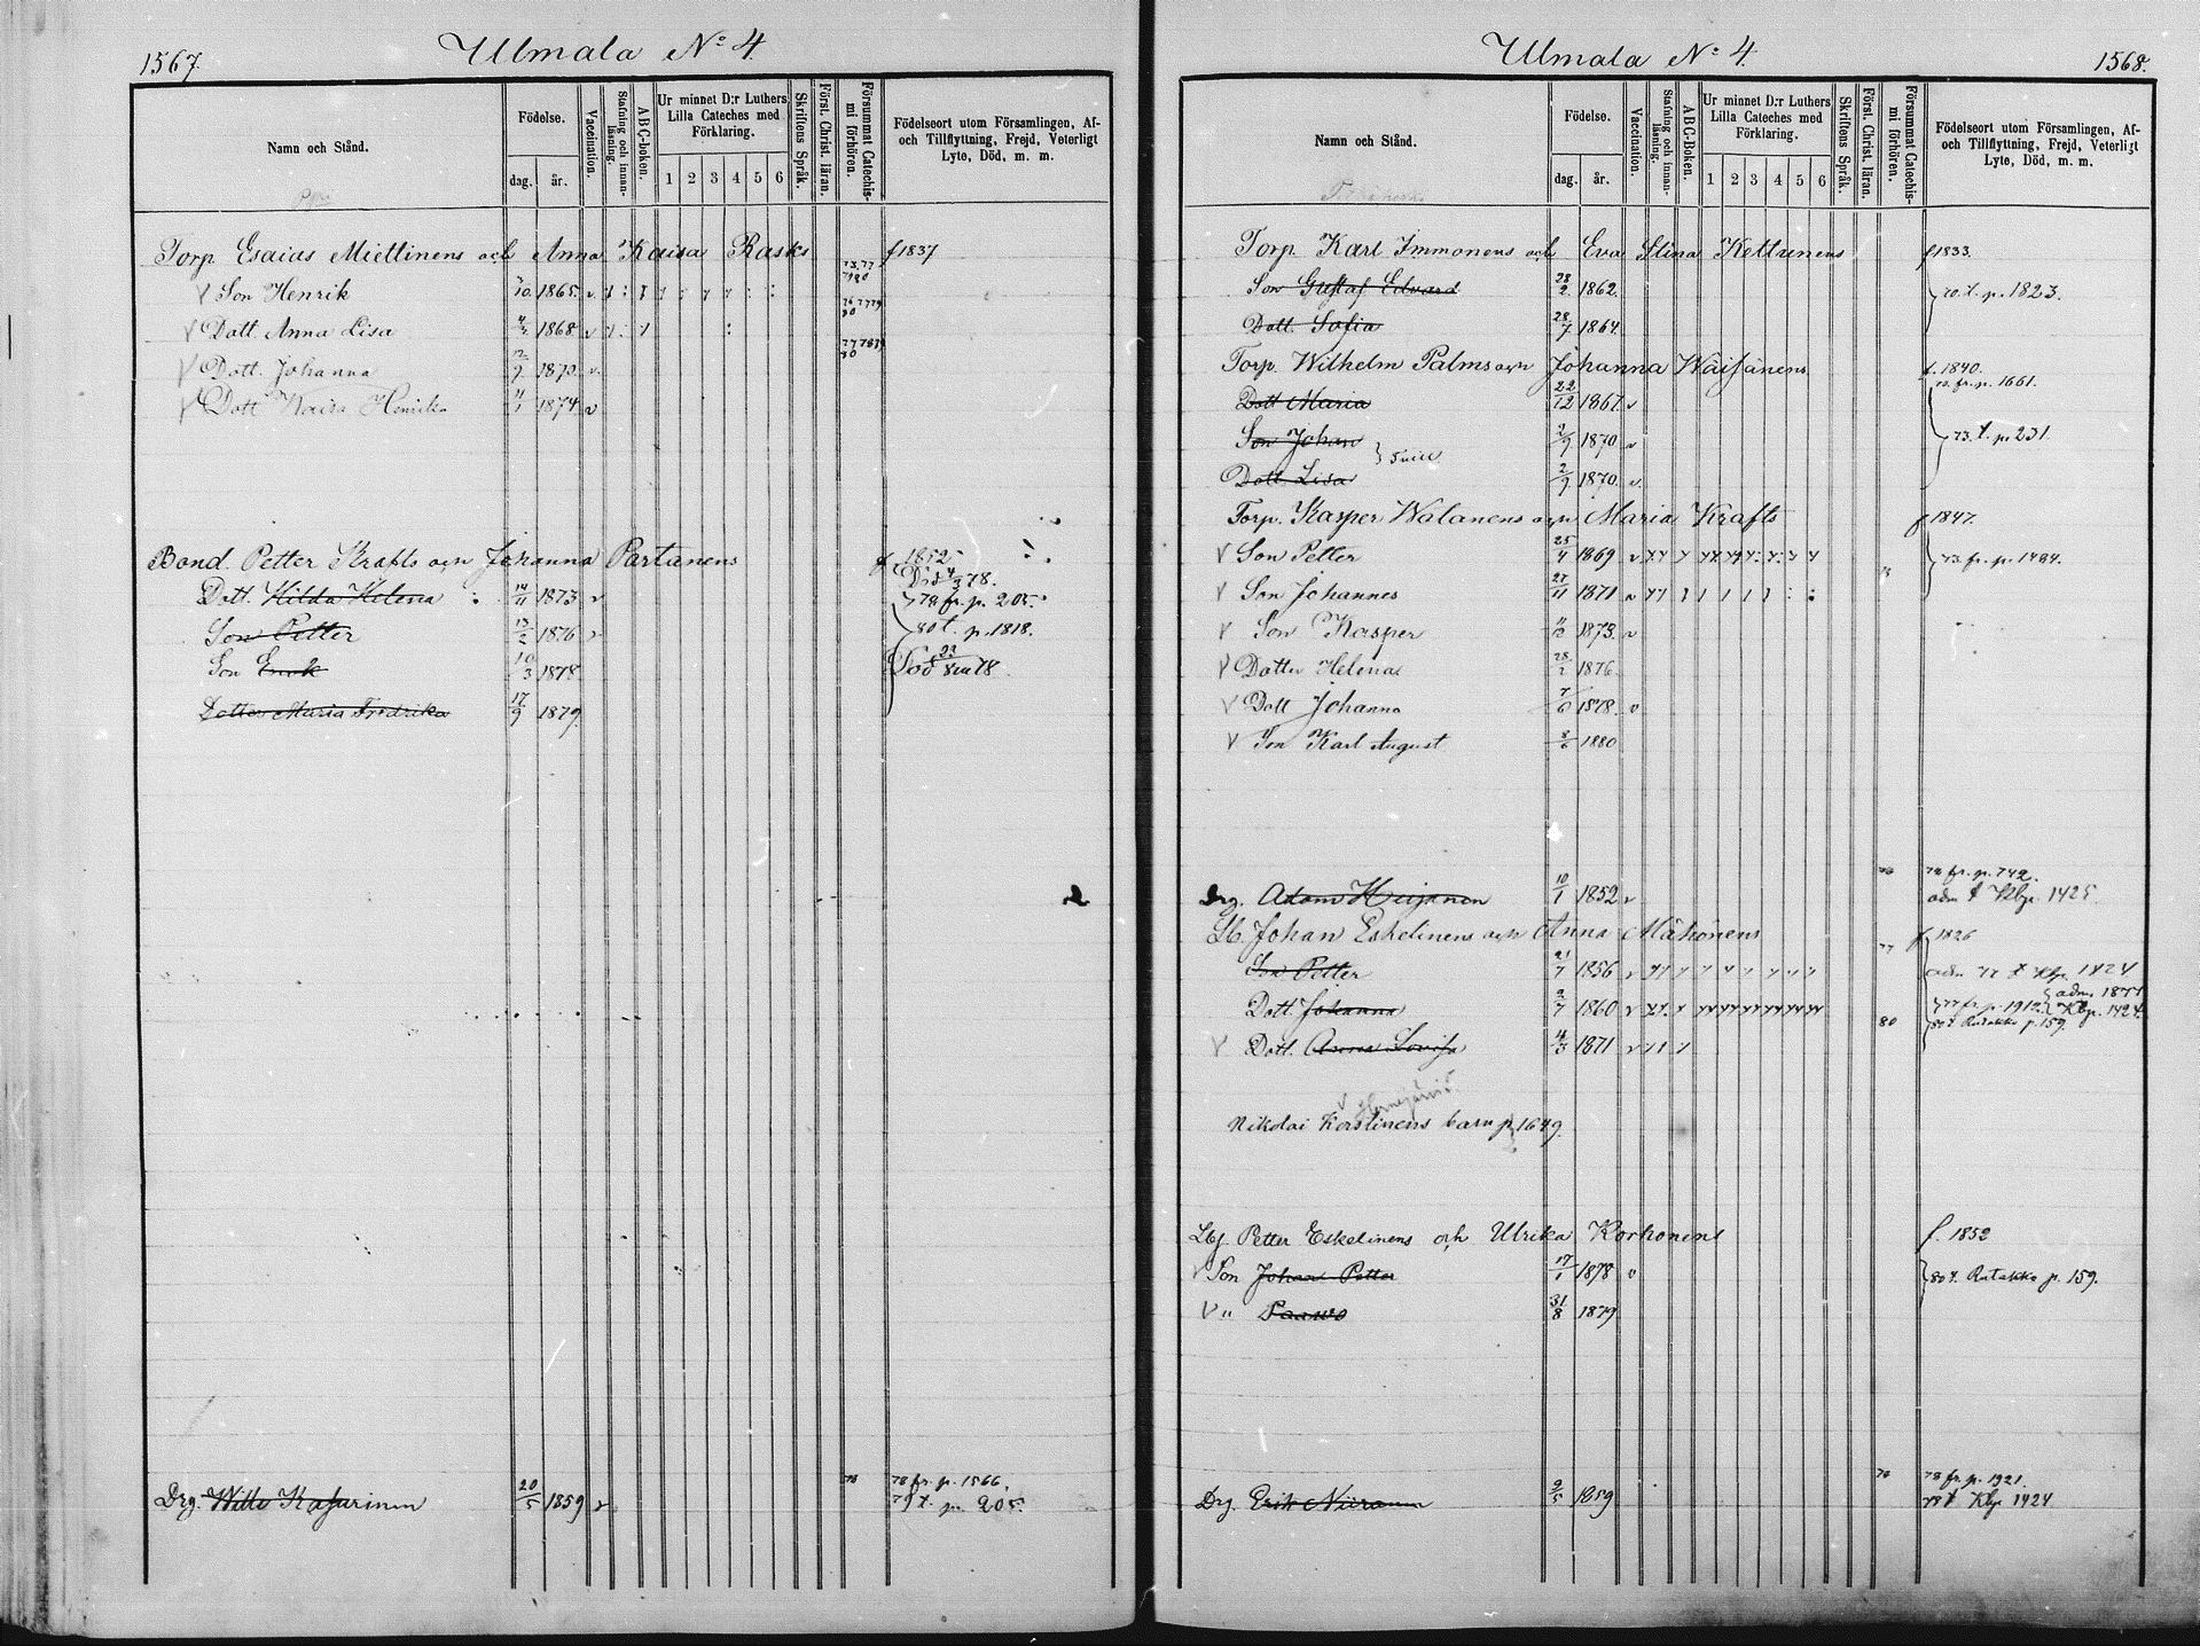 1567.
Ulmala No 4.
Namn och Stånd.
Födelse.
dag.
år.
Vaccination.
Stafning och innanläsning.
ABC-boken.
Ur minnet D:r Luthers Lilla Cateches med Förklaring.
1 2 3 4 5 6
Skriftens Språk.
Först. Christ. läran.
Försummat Catechismi förhören.
Födelseort utom Församlingen, Af- och Tillflyttning, Frejd, Veterligt Lyte, Död, m. m.
Torp Esaias Miettinens och Anna Kaisa Rasks f 1837
Son Henrik 3/10 1865. v 73.77 79 80
Dott Anna Lisa 4/3 1868 v 76 77 79 80
Dott. Johanna 12/9 1870. v. 77 78 79 80
Dott Kaisa Henrika 11/1 1874 v
Bond. Petter Krafts och Johanna Partanens f 1852
Död 4/3 78.
Dott. Hilda Helena 14/11 1873 v 79 fr. p. 205.
Son Petter 13/2 1876 v 80 t. p. 1818.
Son Erik 10/3 1878 Död 23/ 78.
Dotter Maria Fredrika 17/9 1879.
Drg. Wille Kasurinen 20/5 1859 v 78 78 fr. p. 1566.
79 t. p. 205.
1568.
Ulmala No 4.
Namn och Stånd.
Födelse.
dag.
år.
Vaccination.
Stafning och innanläsning.
ABC-Boken.
Ur minnet D:r Luthers Lilla Cateches med Förklaring.
1 2 3 4 5 6
Skriftens Språk.
Först. Christ. läran.
Försummat Catechismi förhören.
Födelseort utom Församlingen, Af- och Tillflyttning, Frejd, Veterligt Lyte, Död, m. m.
Torp. Karl Immonens och Eva Stina Kettunens f 1833.
Son Gustaf Edvard 28/2 1862. 70. t. p. 1823.
Dott. Sofia 28/7 1864.
Torp. Wilhelm Palms och Johanna Wäisänens f. 1840.
70. fr. p. 1661.
Dott Maria 22/12 1867. v
Son Johan 2/9 1870 v 73. t. p. 231.
Dott. Lisa 2/9 1870. v.
Torp. Kasper Walanens och Maria Krafts f 1847.
Son Petter 25/4 1869 v 73. fr. p. 1484.
Son Johannes 27/11 1871 v
Son Kasper 11/12 1873. v
Dotter Helena 28/2 1876
Dott Johanna 7/6 1878. v
Son Karl August 8/6 1880
Drg. Adam Heijanen 10/1 1852 v 78 fr. p. 742.
adm t Klbp. 1425
Lb. Johan Eskelinens och Anna Mähönens f 1826
Son Petter 21/7 1856 v 77 adm 77 t Klp. 1424
Dott. Johanna 9/7 1860 v 77 fr. p. 1912. adm. 1877 Kbp. 1424.
80 80 t. Rutakko p. 159.
Dott. Anna Lovisa 4/3 1871 v
Nikolai Korslinens barn p 1649.
Lbg. Petter Eskelinens och Ulrika Korhonens f. 1852
Son Johan Petter 17/1 1878 v 80 t. Rutakko p. 159.
" Paavo 31/8 1879
Drg. Erik Niiranen 9/5 1859 78 78 fr. p. 1921.
78 t Kbp 1424